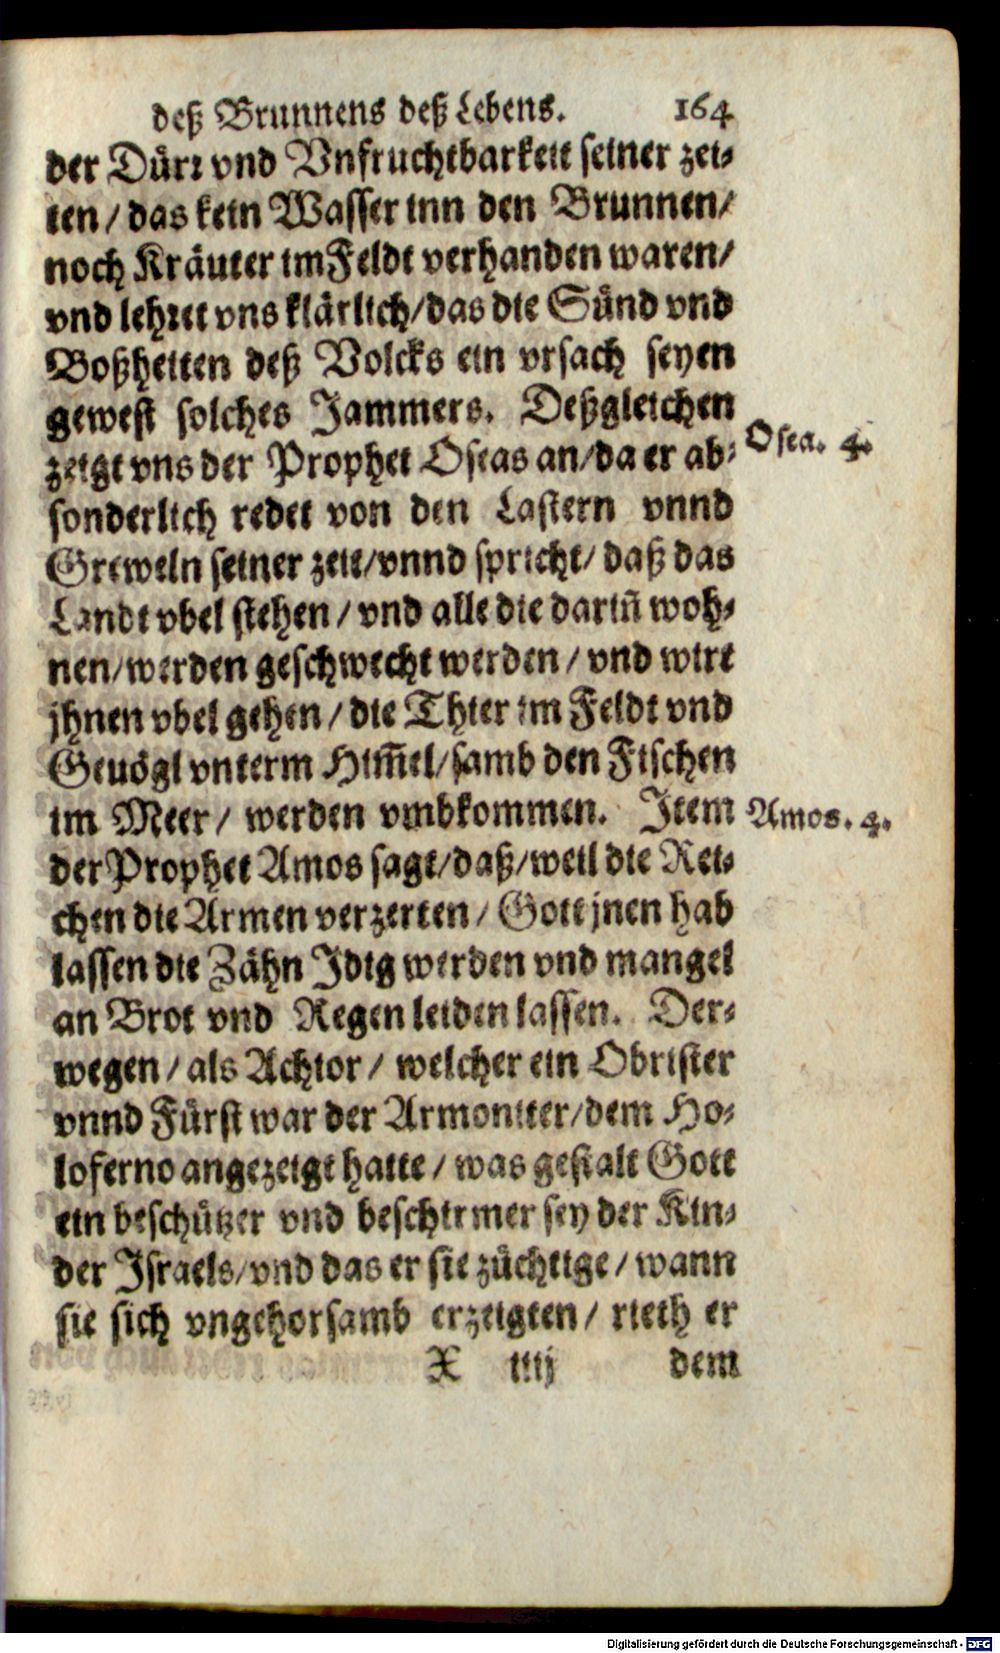 deß Brunnens deß Lebens. 164
der Dürr vnd Vnfruchtbarkeit seiner zei-
ten / das kein Wasser inn den Brunnen /
noch Kräuter im Feldt verhanden waren /
vnd lehret vns klärlich / das die Sünd vnd
Boßheiten deß Volcks ein vrsach seyen
gewest solches Jammers. Deßgleichen
zeigt vns der Prophet Oseas an / da er ab- Osea. 4.
sonderlich redet von den Lastern vnnd
Greweln seiner zeit / vnnd spricht / daß das
Landt vbel stehen / vnd alle die darin̄ woh-
nen / werden geschwecht werden / vnd wirt
jhnen vbel gehen / die Thier im Feldt vnd
Geuögl vnterm Him̄el / samb den Fischen
im Meer / werden vmbkommen. Item Amos. 4.
der Prophet Amos sagt / daß / weil die Rei-
chen die Armen verzerten / Gott jnen hab
lassen die Zähn Idig werden vnd mangel
an Brot vnd Regen leiden lassen. Der-
wegen / als Achior / welcher ein Obrister
vnnd Fürst war der Armoniter / dem Ho-
loferno angezeigt hatte / was gestalt Gott
ein beschützer vnd beschirmer sey der Kin-
der Israels / vnd das er sie züchtige / wann
sie sich vngehorsamb erzeigten / rieth er
X iiij dem
Digitalisierung gefördert durch die Deutsche Forschungsgemeinschaft - DFG